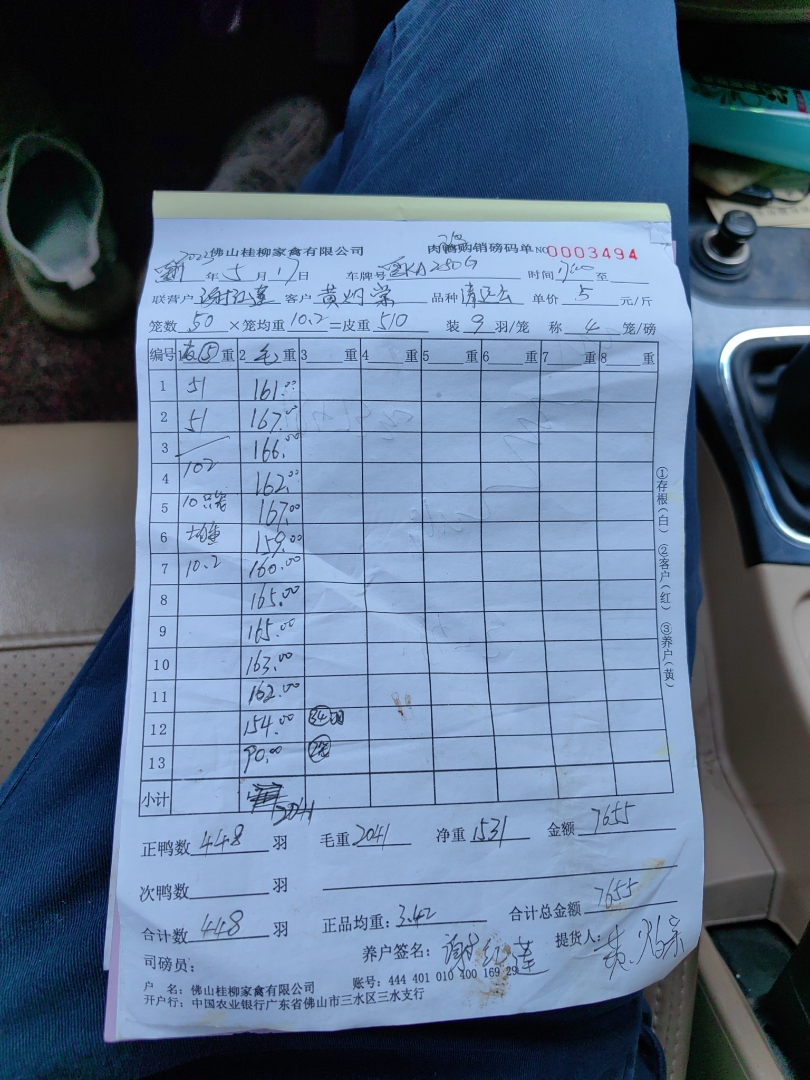 2022佛山桂柳家禽有限公司 肉鸭购销磅码单 NO 0003494
年 5 月 17 日 车牌号 时间 至
联营户 谢红莲 客户 黄炳棠 品种 单价 5 元/斤
笼数 50 ×笼均重 10.2 =皮重 510 装 9 羽/笼 称 4 笼/磅
编号 1 重 2 毛 重 3 重 4 重 5 重 6 重 7 重 8 重
1 51 161.00
2 51 167.00
3 166.00
4 102 162.00
5 10只笼 167.00
6 均重 159.00
7 10.2 160.00
8 165.00
9 165.00
10 163.00
11 162.00
12 154.00 34羽
13 90.00
小计 2041
正鸭数 448 羽 毛重 2041 净重 1531 金额 7655
次鸭数 羽
合计数 448 羽 正品均重: 3.42 合计总金额 7655
司磅员: 养户签名: 谢红莲 提货人:
户 名: 佛山桂柳家禽有限公司 账号: 444 401 010 400 169 29
开户行: 中国农业银行广东省佛山市三水区三水支行
①存根(白) ②客户(红) ③养户(黄)